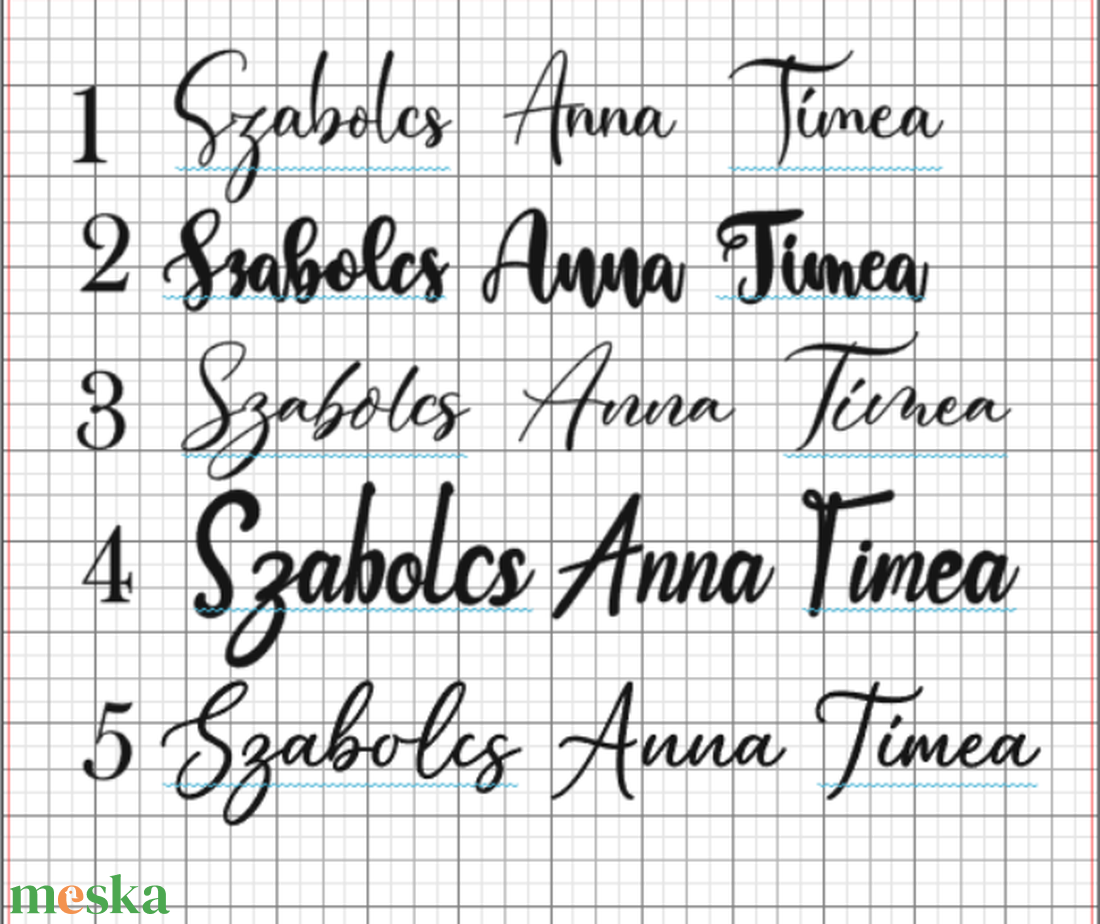 1 Szabolcs Anna Tímea
2 Szabolcs Anna Tímea
3 Szabolcs Anna Tímea
4 Szabolcs Anna Tímea
5 Szabolcs Anna Tímea
meska